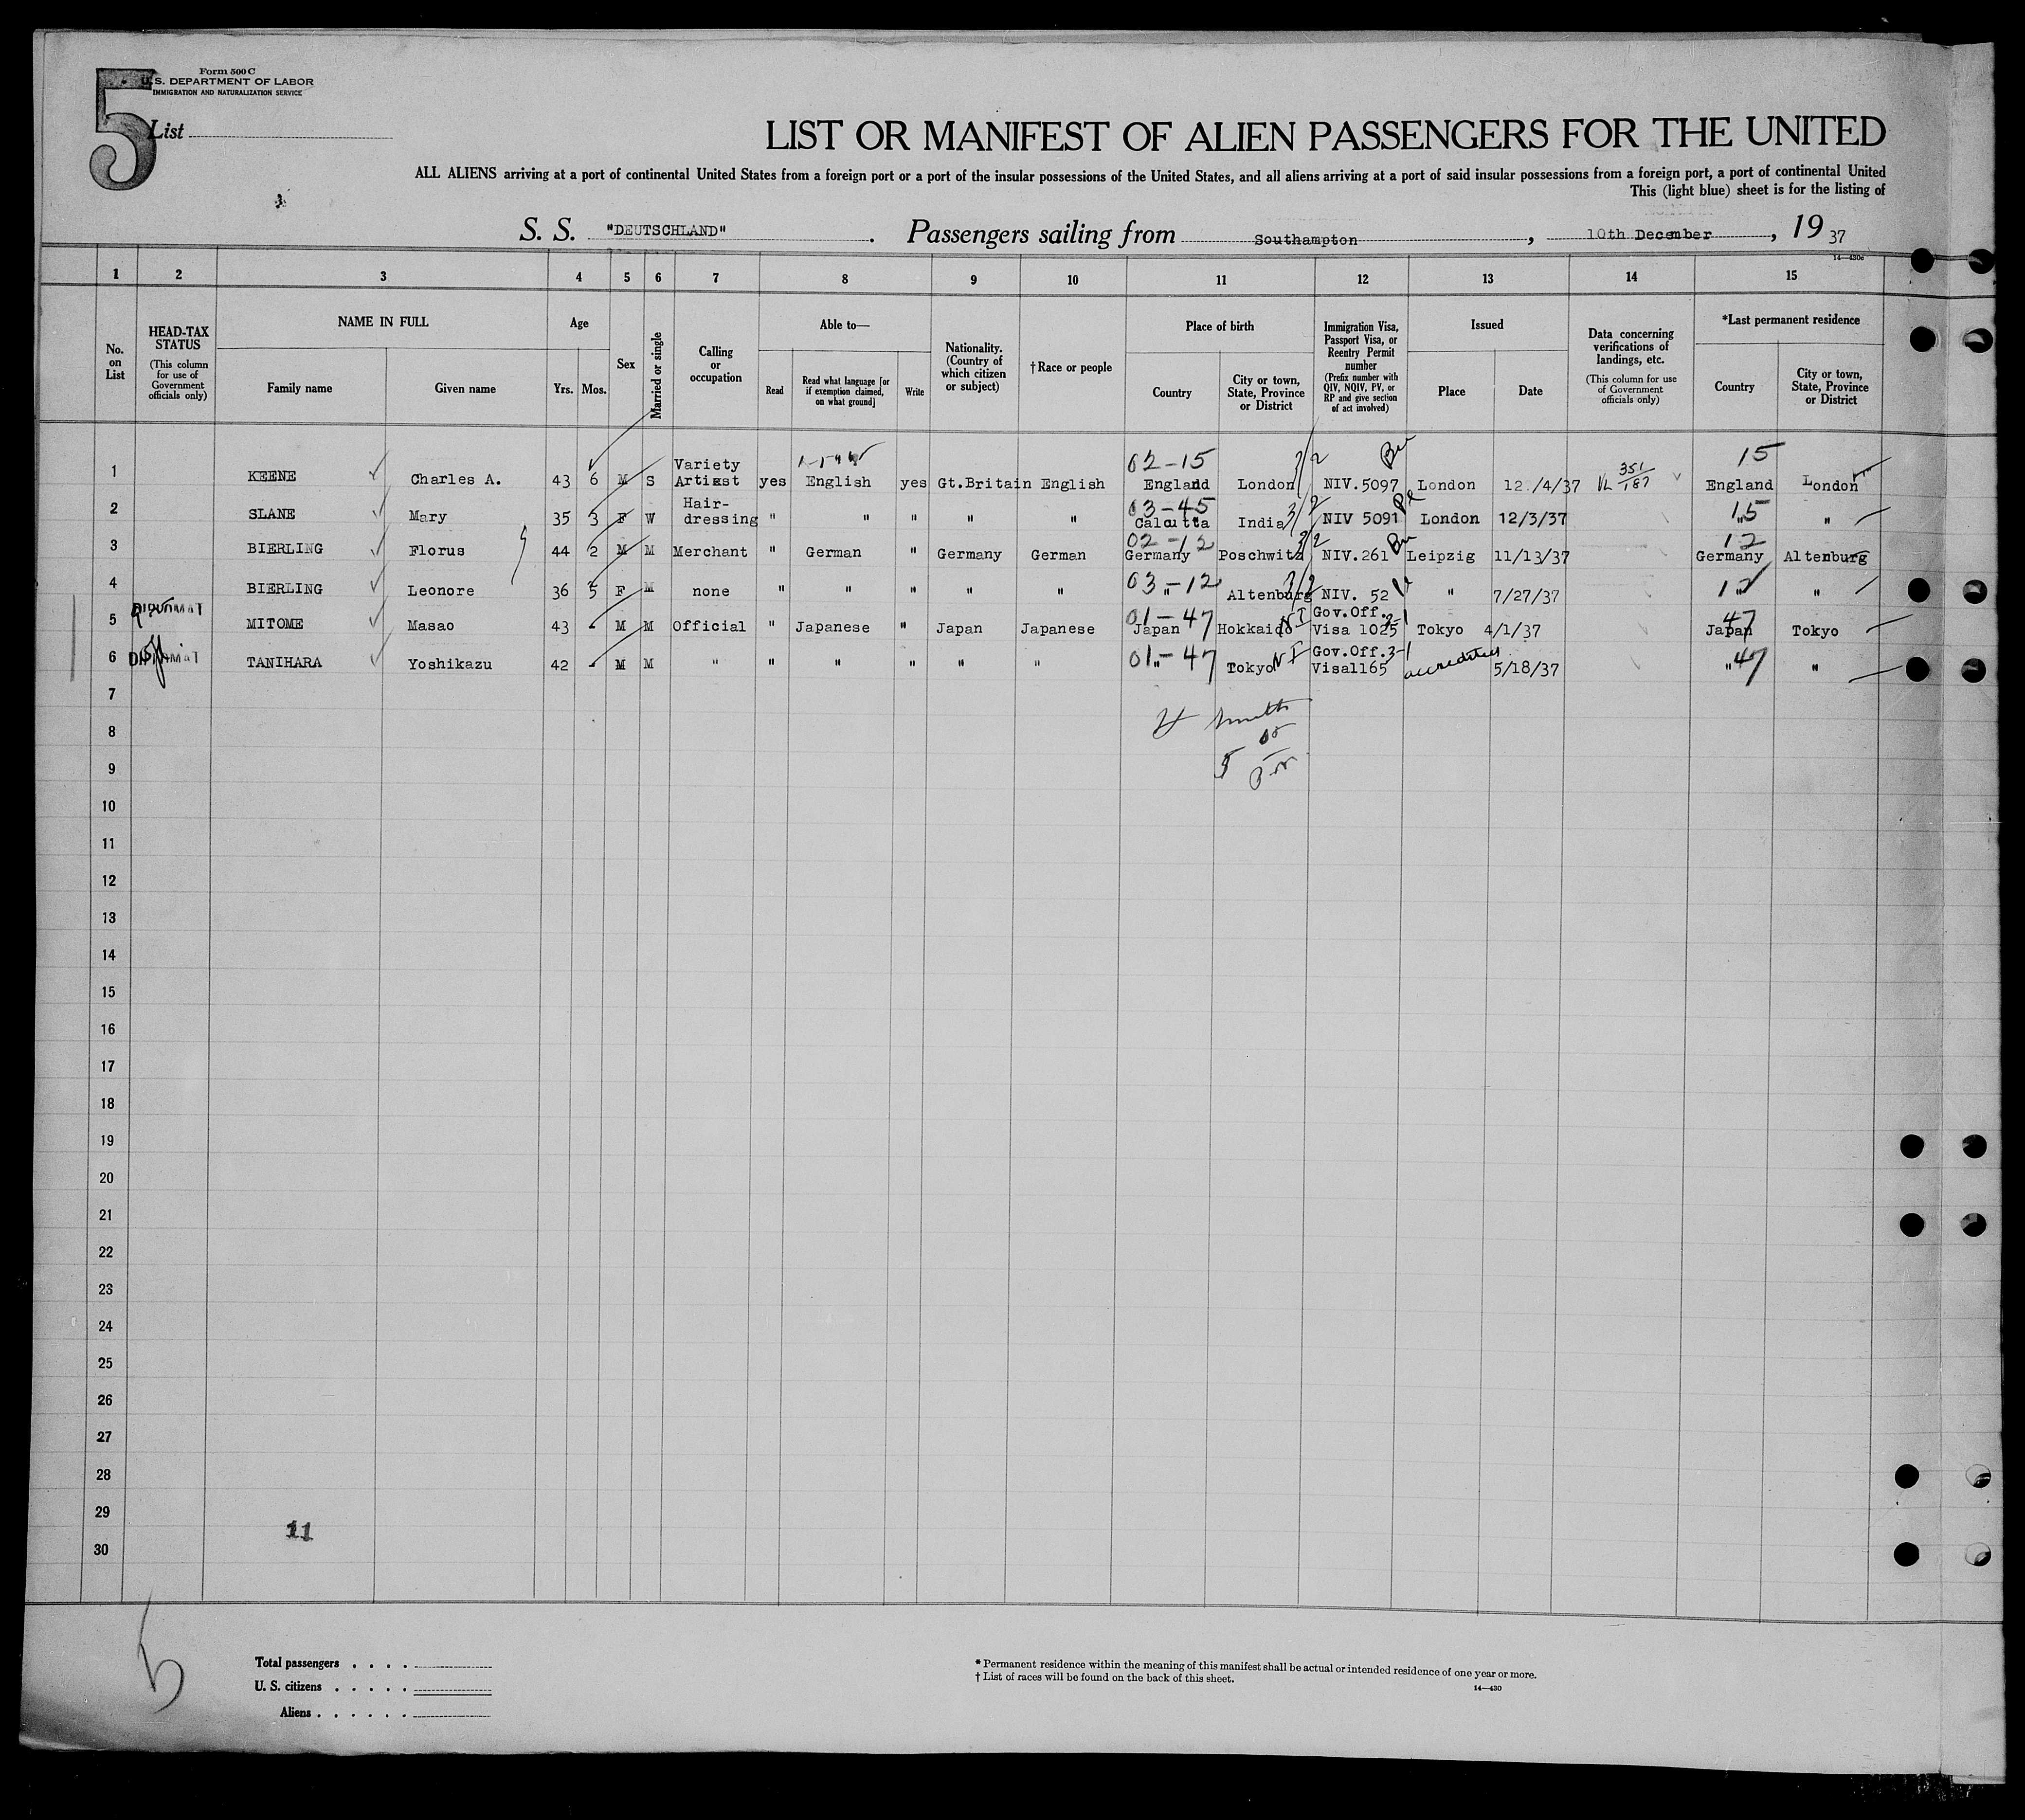 Form 500 C
U.S. DEPARTMENT OF LABOR
IMMIGRATION AND NATURALIZATION SERVICE
5
List
LIST OR MANIFEST OF ALIEN PASSENGERS FOR THE UNITED
ALL ALIENS arriving at a port of continental United States from a foreign port or a port of the insular possessions of the United States, and all aliens arriving at a port of said insular possessions from a foreign port, a port of continental United
This (light blue) sheet is for the listing of
S. S. "DEUTSCHLAND". Passengers sailing from Southampton, 10th December, 19 37
14—430c
1 2 3 4 5 6 7 8 9 10 11 12 13 14 15
No. on List
HEAD-TAX STATUS (This column for use of Government officials only)
NAME IN FULL
Family name Given name
Age
Yrs. Mos.
Sex
Married or single
Calling or occupation
Able to—
Read Read what language [or if exemption claimed, on what ground] Write
Nationality. (Country of which citizen or subject)
†Race or people
Place of birth
Country City or town, State, Province or District
Immigration Visa, Passport Visa, or Reentry Permit number (Prefix number with QIV, NQIV, PV, or RP and give section of act involved)
Issued
Place Date
Data concerning verifications of landings, etc. (This column for use of Government officials only)
*Last permanent residence
Country City or town, State, Province or District
02-15 3/2 351/187 15
1 KEENE Charles A. 43 6 M S Variety Artist yes English yes Gt.Britain English England London NIV.5097 London 12/4/37 England London
03-45 3/2 15
2 SLANE Mary 35 3 F W Hair-dressing " " " " " Calcutta India NIV 5091 London 12/3/37 " "
02-12 3/2 12
3 BIERLING Florus 44 2 M M Merchant " German " Germany German Germany Poschwitz NIV.261 Leipzig 11/13/37 Germany Altenburg
03-12 3/2 12
4 BIERLING Leonore 36 5 F M none " " " " " " Altenburg NIV. 52 " 7/27/37 " "
DIPLOMAT 01-47 3-1 47
5 MITOME Masao 43 - M M Official " Japanese " Japan Japanese Japan Hokkaido Gov.Off. Visa 1025 Tokyo 4/1/37 Japan Tokyo
DIPLOMAT 01-47 3-1 accredited 47
6 TANIHARA Yoshikazu 42 - M M " " " " " " " Tokyo Gov.Off. Visa1165 5/18/37 " "
7
8
9
10
11
12
13
14
15
16
17
18
19
20
21
22
23
24
25
26
27
28
29
30
11
5
Total passengers . . . .
U. S. citizens . . . . .
Aliens . . . . . .
* Permanent residence within the meaning of this manifest shall be actual or intended residence of one year or more.
† List of races will be found on the back of this sheet.
14—430